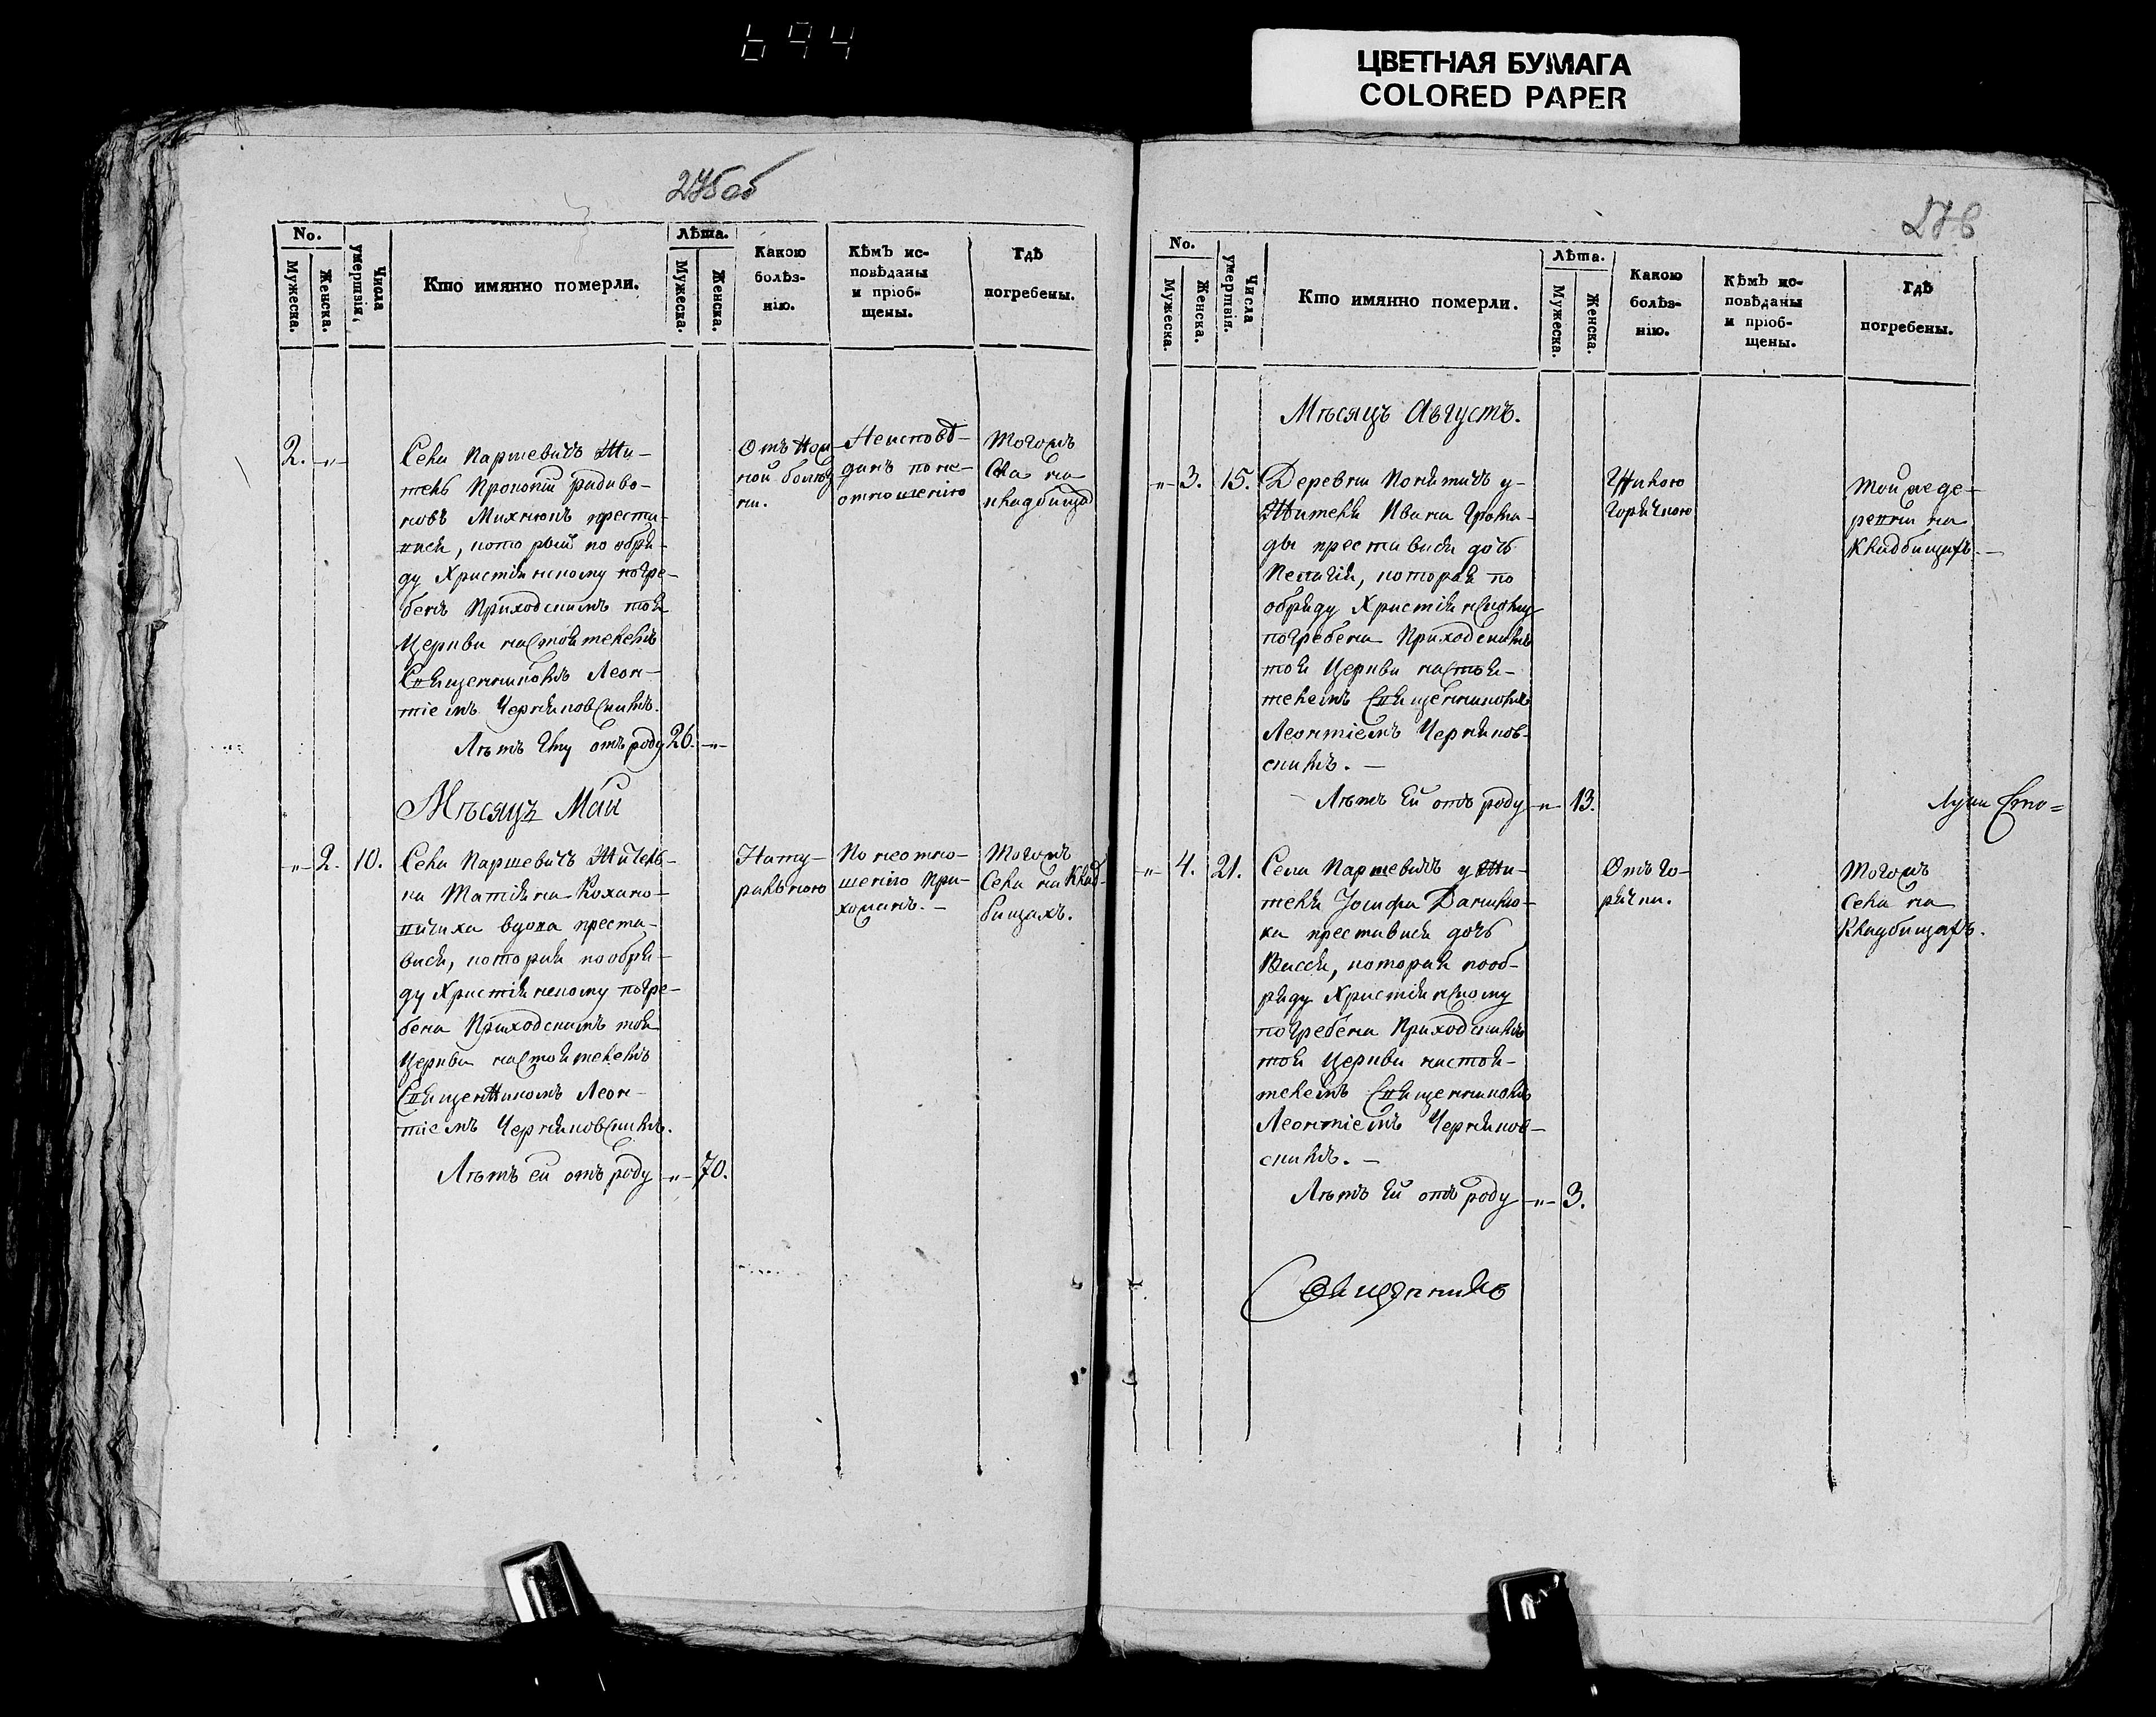 694
ЦВЕТНАЯ БУМАГА
COLORED PAPER
275об
No.
Мужеска.
Женска.
Числа умершвія.
Кто имянно померли.
Лѣта.
Мужеска.
Женска.
Какою болѣз-
нію.
Кѣмъ ис-
повѣданы
и пріоб-
щены.
Гдѣ
погребены.
2. -"-
Села Паршевичъ Жи-
тель Прокопій Радиво-
новъ Михнюкъ преста-
вися, который по обря-
ду Христіянскому погре-
бенъ Приходскимъ тоя
Церкви настоятелемъ
Священникомъ Леон-
тіемъ Черняковскимъ.
Лѣтъ Ему отъ роду 26. -"-
ной болѣз
ни.
Неисповѣ-
данъ по не-
отношенію
Тогожъ
Села на
кладбищѣ
Мѣсяцъ Май
-"- 2. 10.
Села Паршевичъ Житель-
ка Татіяна Кохано-
вичиха вдова преста-
вися, которая по обря-
ду Христіянскому погре-
бена Приходскимъ тоя
Церкви настоятелемъ
Священникомъ Леон-
тіемъ Черняковскимъ.
Лѣтъ ей отъ роду -"- 70.
Нату-
ральною
По неотно-
шенію При-
хожанъ. -
Тогожъ
Села на Клад-
бищахъ.
276
No.
Мужеска.
Женска.
Числа умершвія.
Кто имянно померли.
Лѣта.
Мужеска.
Женска.
Какою
болѣз-
нію.
Кѣмъ ис-
повѣданы
и пріоб-
щены.
Гдѣ
погребены.
Мѣсяцъ Августъ.
-"- 3. 15.
Деревни Понятичъ у
Жителя Ивана Грома-
ды преставися дочь
Пелагія, которая по
обряду Христіянскому
погребена Приходскимъ
тоя Церкви настоя-
телемъ Священникомъ
Леонтіемъ Черняков-
скимъ. -
Лѣтъ Ей отъ роду -"- 13.
Горячкою
Той же де-
ревни на
Кладбищахъ. -
-"- 4. 21.
Села Паршевичъ у Жи-
теля Іосифа Данилю-
ка преставися дочь
Васса, которая по об-
ряду Христіянскому
погребена Приходскимъ
тоя Церкви настоя-
телемъ Священникомъ
Леонтіемъ Черняков-
скимъ. -
Лѣтъ Ей отъ роду -"- 3.
Отъ го-
рячки.
Тогожъ
Села на
Кладбищахъ.
Священникъ